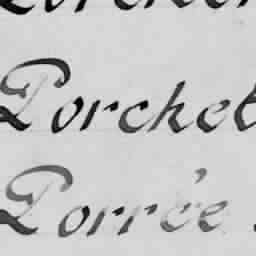 Porchet
Porrée